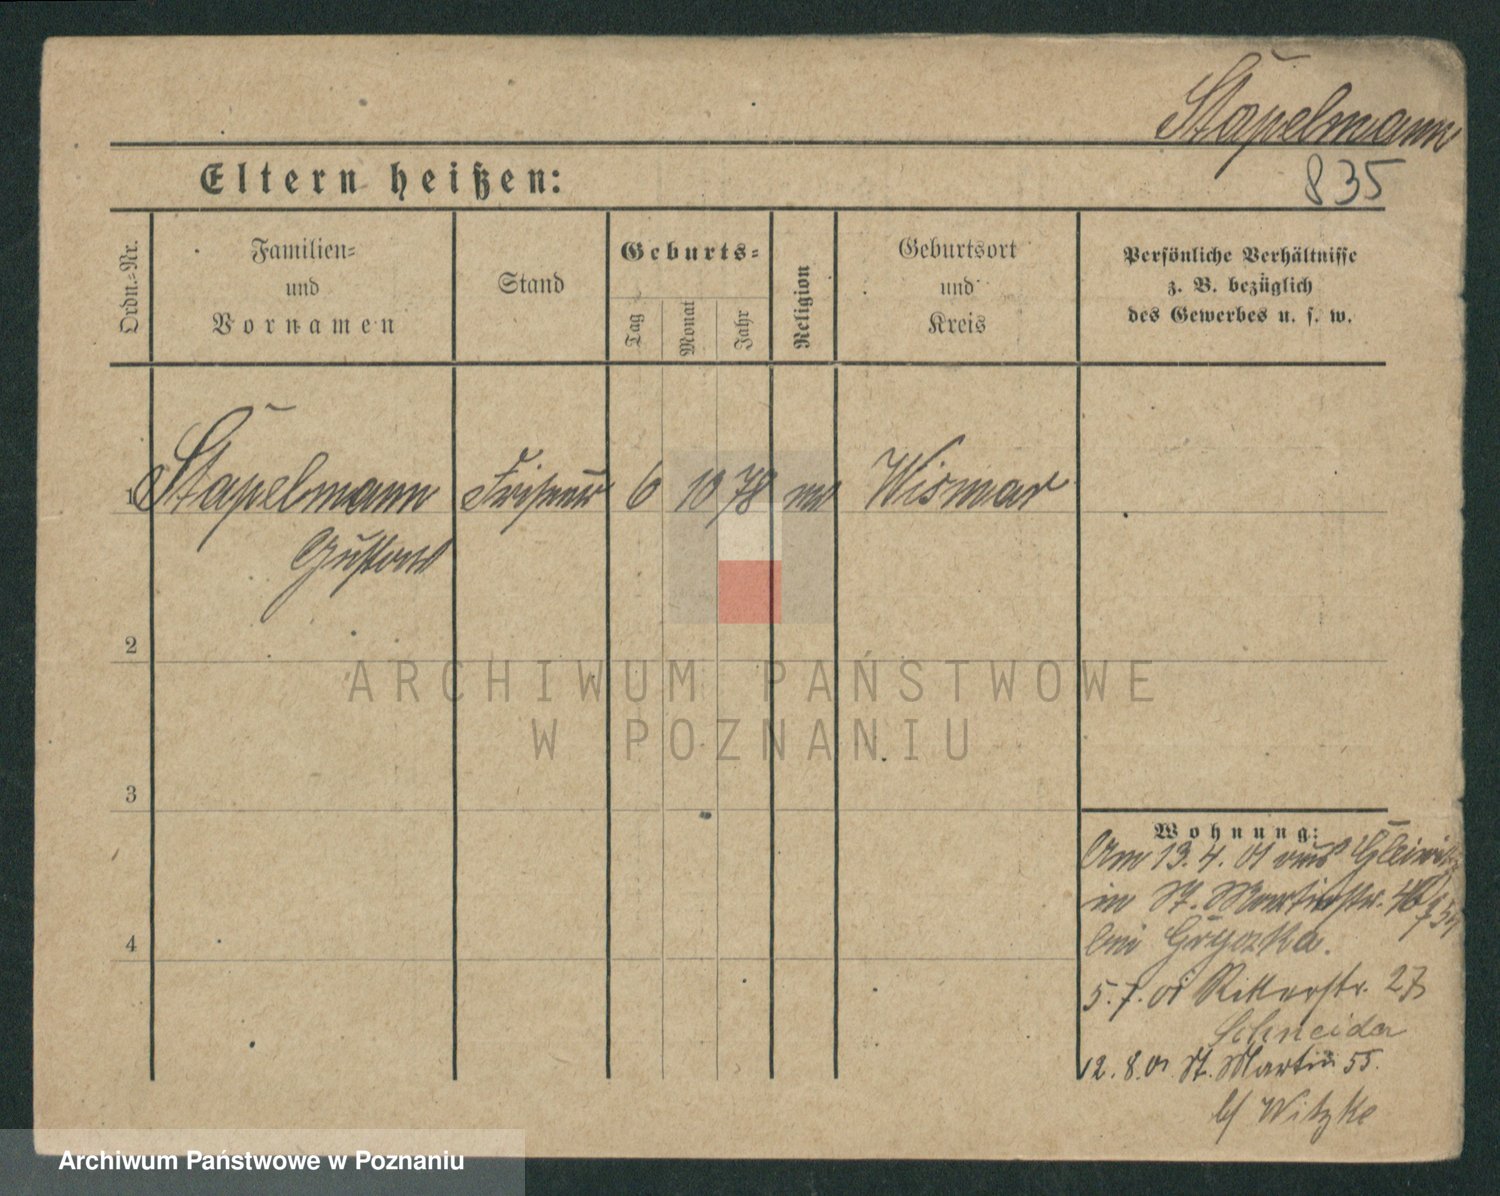 Stapelmann
835
Eltern heißen:
Ordn.-Nr.
Familien-
und
Vornamen
Stand
Geburts-
Tag
Monat
Jahr
Religion
Geburtsort
und
Kreis
Persönliche Verhältnisse
z. B. bezüglich
des Gewerbes u. s. w.
1 Stapelmann Friseur 6 10 78 Wismar
Gustav
2
3
4
ARCHIWUM PAŃSTWOWE
W POZNANIU
Wohnung:
Am 13. 4. 01 aus Gleiwitz
in St. Martinstr. 46
bei
5. 7. 01 Ritterstr. 27
Schneider
12. 8. 01 St. Martin 55.
b/ Witzke
Archiwum Państwowe w Poznaniu